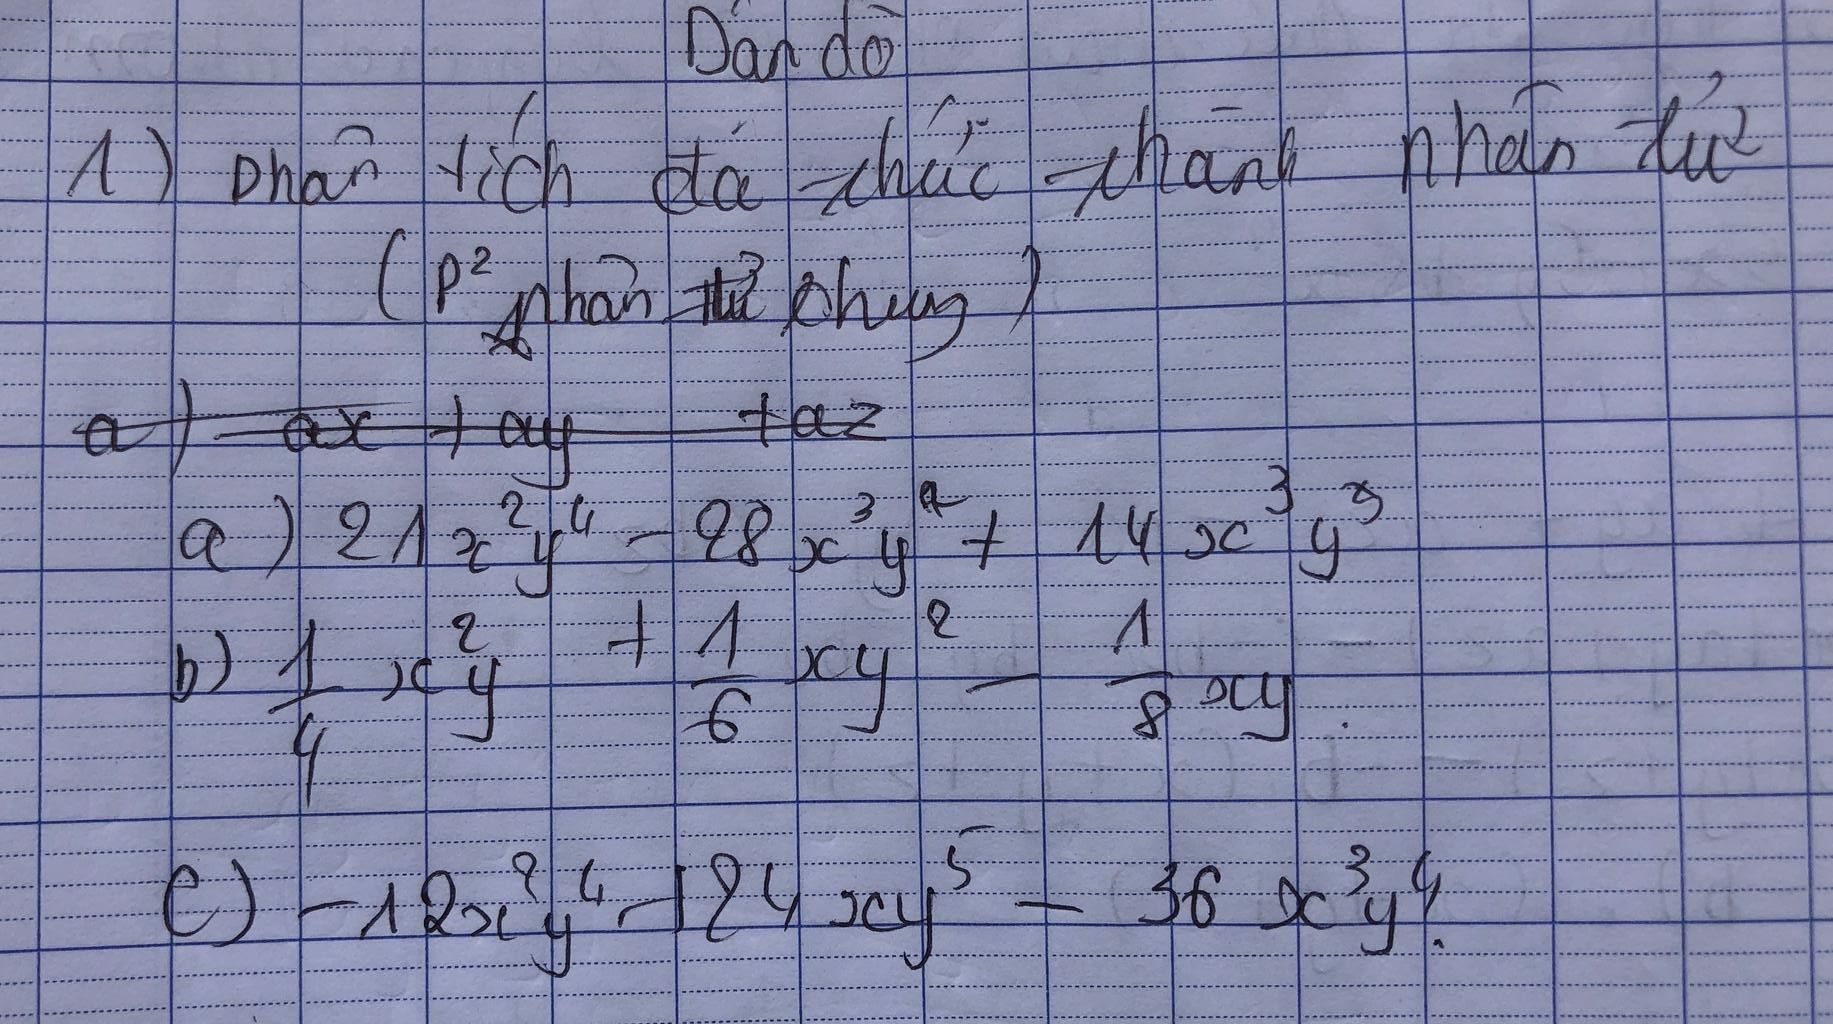 Dặn dò
1) Phân tích đa thức thành nhân tử
(P² nhân tử chung)
a) ax + ay + az
a) 21x²y⁴ - 28x³y² + 14x³y³
b) 1/4 x²y + 1/6 xy² - 1/8 xy.
c) -12x²y⁴ - 24xy⁵ - 36x³y⁴.